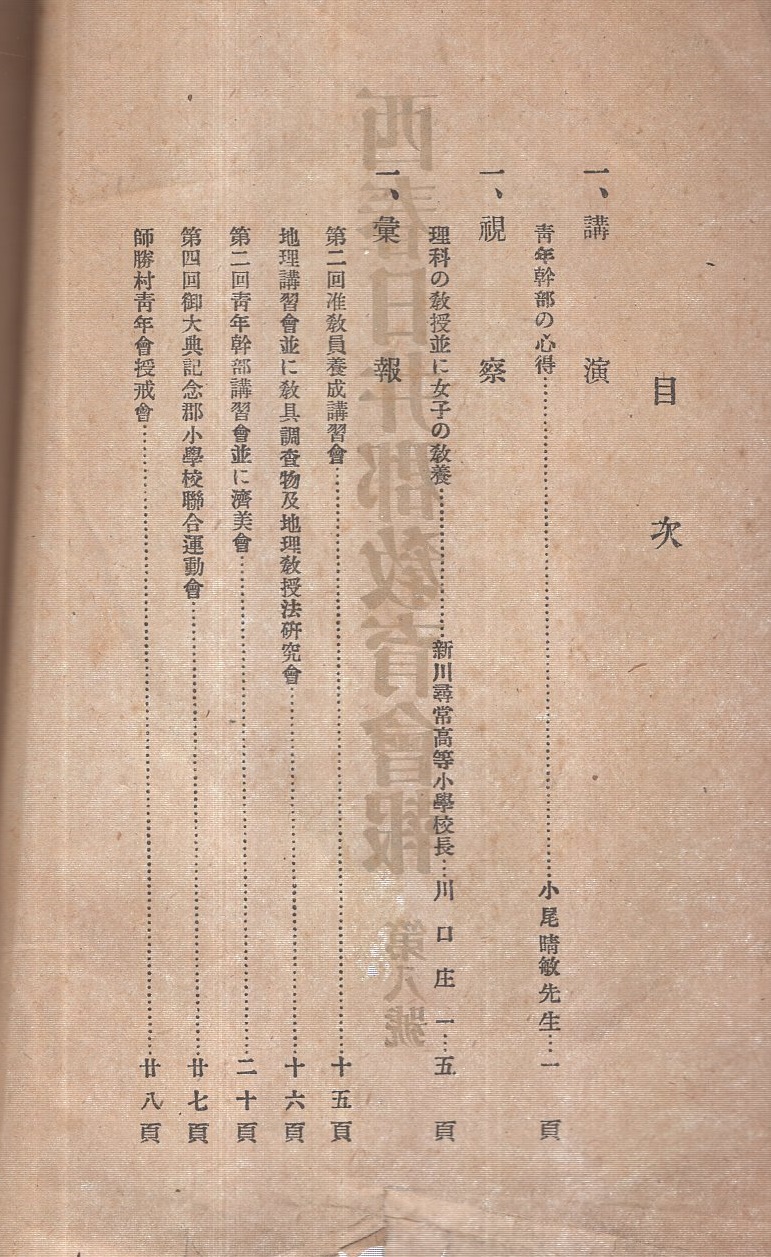 目次
一、講演
青年幹部の心得……小尾晴敏先生…一頁
一、視察
理科の敎授並に女子の敎養……新川尋常高等小學校長…川口庄一…五頁
一、彙報
第二回准敎員養成講習會……十五頁
地理講習會並に敎具調査物及地理敎授法研究會……十六頁
第二回靑年幹部講習會並に濟美會……二十頁
第四回御大典記念郡小學校聯合運動會……廿七頁
師勝村靑年會授戒會……廿八頁
西春日井郡敎育會報
第八號